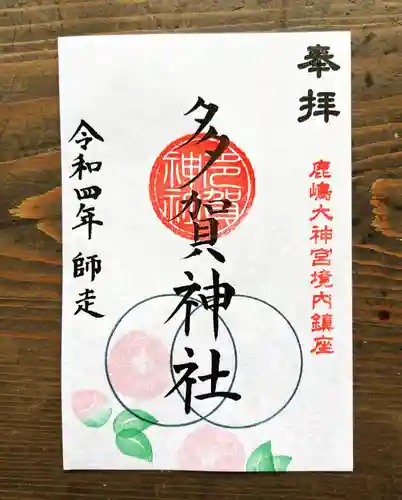 奉拝
鹿嶋大神宮境内鎮座
多賀神社
多賀神社
令和四年 師走